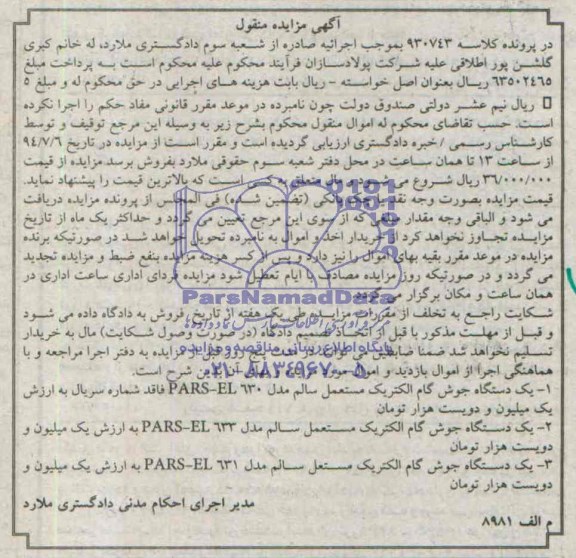 آگهی مزایده منقول
در پرونده کلاسه ۹۳۰۷۴۳ بموجب اجرائیه صادره از شعبه سوم دادگستری ملارد، له خانم کبری
گلشن پور اطلاقی علیه شرکت پولادسازان فرآیند محکوم علیه محکوم است به پرداخت مبلغ
۶۳۵۰۲۴۶۵ ریال بعنوان اصل خواسته – ریال بابت هزینه های اجرایی در حق محکوم له و مبلغ ۵
ریال نیم عشر دولتی صندوق دولت چون نامبرده در موعد مقرر قانونی مفاد حکم را اجرا نکرده
است. حسب تقاضای محکوم له اموال منقول محکوم بشرح زیر به وسیله این مرجع توقیف و توسط
کارشناس رسمی / خبره دادگستری ارزیابی گردیده است و مقرر است از مزایده در تاریخ ۹۴/۷/۶
از ساعت ۱۳ تا همان ساعت در محل دفتر شعبه سوم حقوقی ملارد بفروش برسد مزایده از قیمت
۳۶/۰۰۰/۰۰۰ ریال شروع می شود و مال متعلق به کسی است که بالاترین قیمت را پیشنهاد نماید.
قیمت مزایده بصورت وجه نقد یا چک بانکی (تضمین شده) فی المجلس از پرونده مزایده دریافت
می شود و الباقی وجه مقدار مبلغی که از سوی این مرجع تعیین می گردد و حداکثر یک ماه از تاریخ
مزایده تجاوز نخواهد کرد از خریدار اخذ و اموال به نامبرده تحویل خواهد شد در صورتیکه برنده
مزایده در موعد مقرر بقیه بهای اموال را نپردازد پس از کسر هزینه مزایده بنفع ضبط و مزایده تجدید
می گردد و در صورتیکه روز مزایده مصادف با ایام تعطیل شود مزایده فردای اداری ساعت اداری در
همان ساعت و مکان برگزار می گردد.
شکایت راجع به تخلف از مقررات مزایده ظرف یک هفته از تاریخ فروش به دادگاه داده می شود
و قبل از مهلت مذکور یا قبل از اتخاذ تصمیم دادگاه (در صورت وصول شکایت) مال به خریدار
تسلیم نخواهد شد ضمنا متقاضیان می توانند در مدت پنج روز قبل از مزایده به دفتر اجرا مراجعه و با
هماهنگی اجرا از اموال بازدید و اموال مورد مزایده آن بدین شرح است.
۱- یک دستگاه جوش گام الکتریک مستعمل سالم مدل PARS-EL ۶۳۰ فاقد شماره سریال به ارزش
یک میلیون و دویست هزار تومان
۲- یک دستگاه جوش گام الکتریک مستعمل سالم مدل PARS-EL ۶۳۳ به ارزش یک میلیون و
دویست هزار تومان
۳- یک دستگاه جوش گام الکتریک مستعل سالم مدل PARS-EL ۶۳۱ به ارزش یک میلیون و
دویست هزار تومان
مدیر اجرای احکام مدنی دادگستری ملارد
م الف ۸۹۸۱
ParsNamadData
پایگاه اطلاع رسانی مناقصه و مزایده
۰۲۱-۸۸۳۴۹۶۷۰-۵